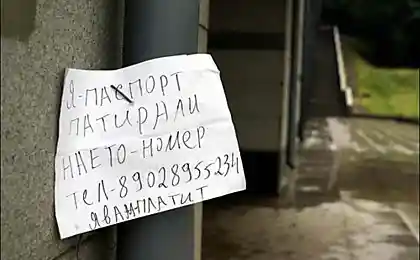 Я-ПАСПОРТ
ПАТИРЯЛИ
НАЕТО-НОМЕР
ТЕЛ-89028955234
ЯВАМПЛАТИТ